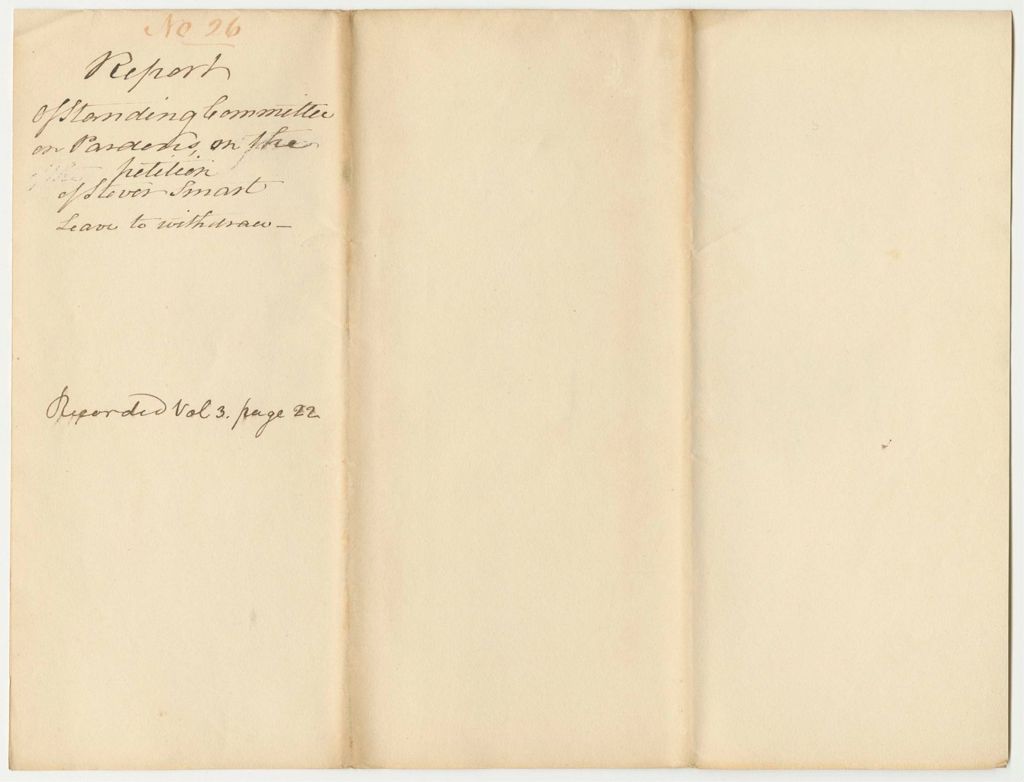 No 26
Report
Of Standing Committee
on Pardons, on the
petition
of Sever Smart
Leave to withdraw—
Recorded Vol 3. page 22